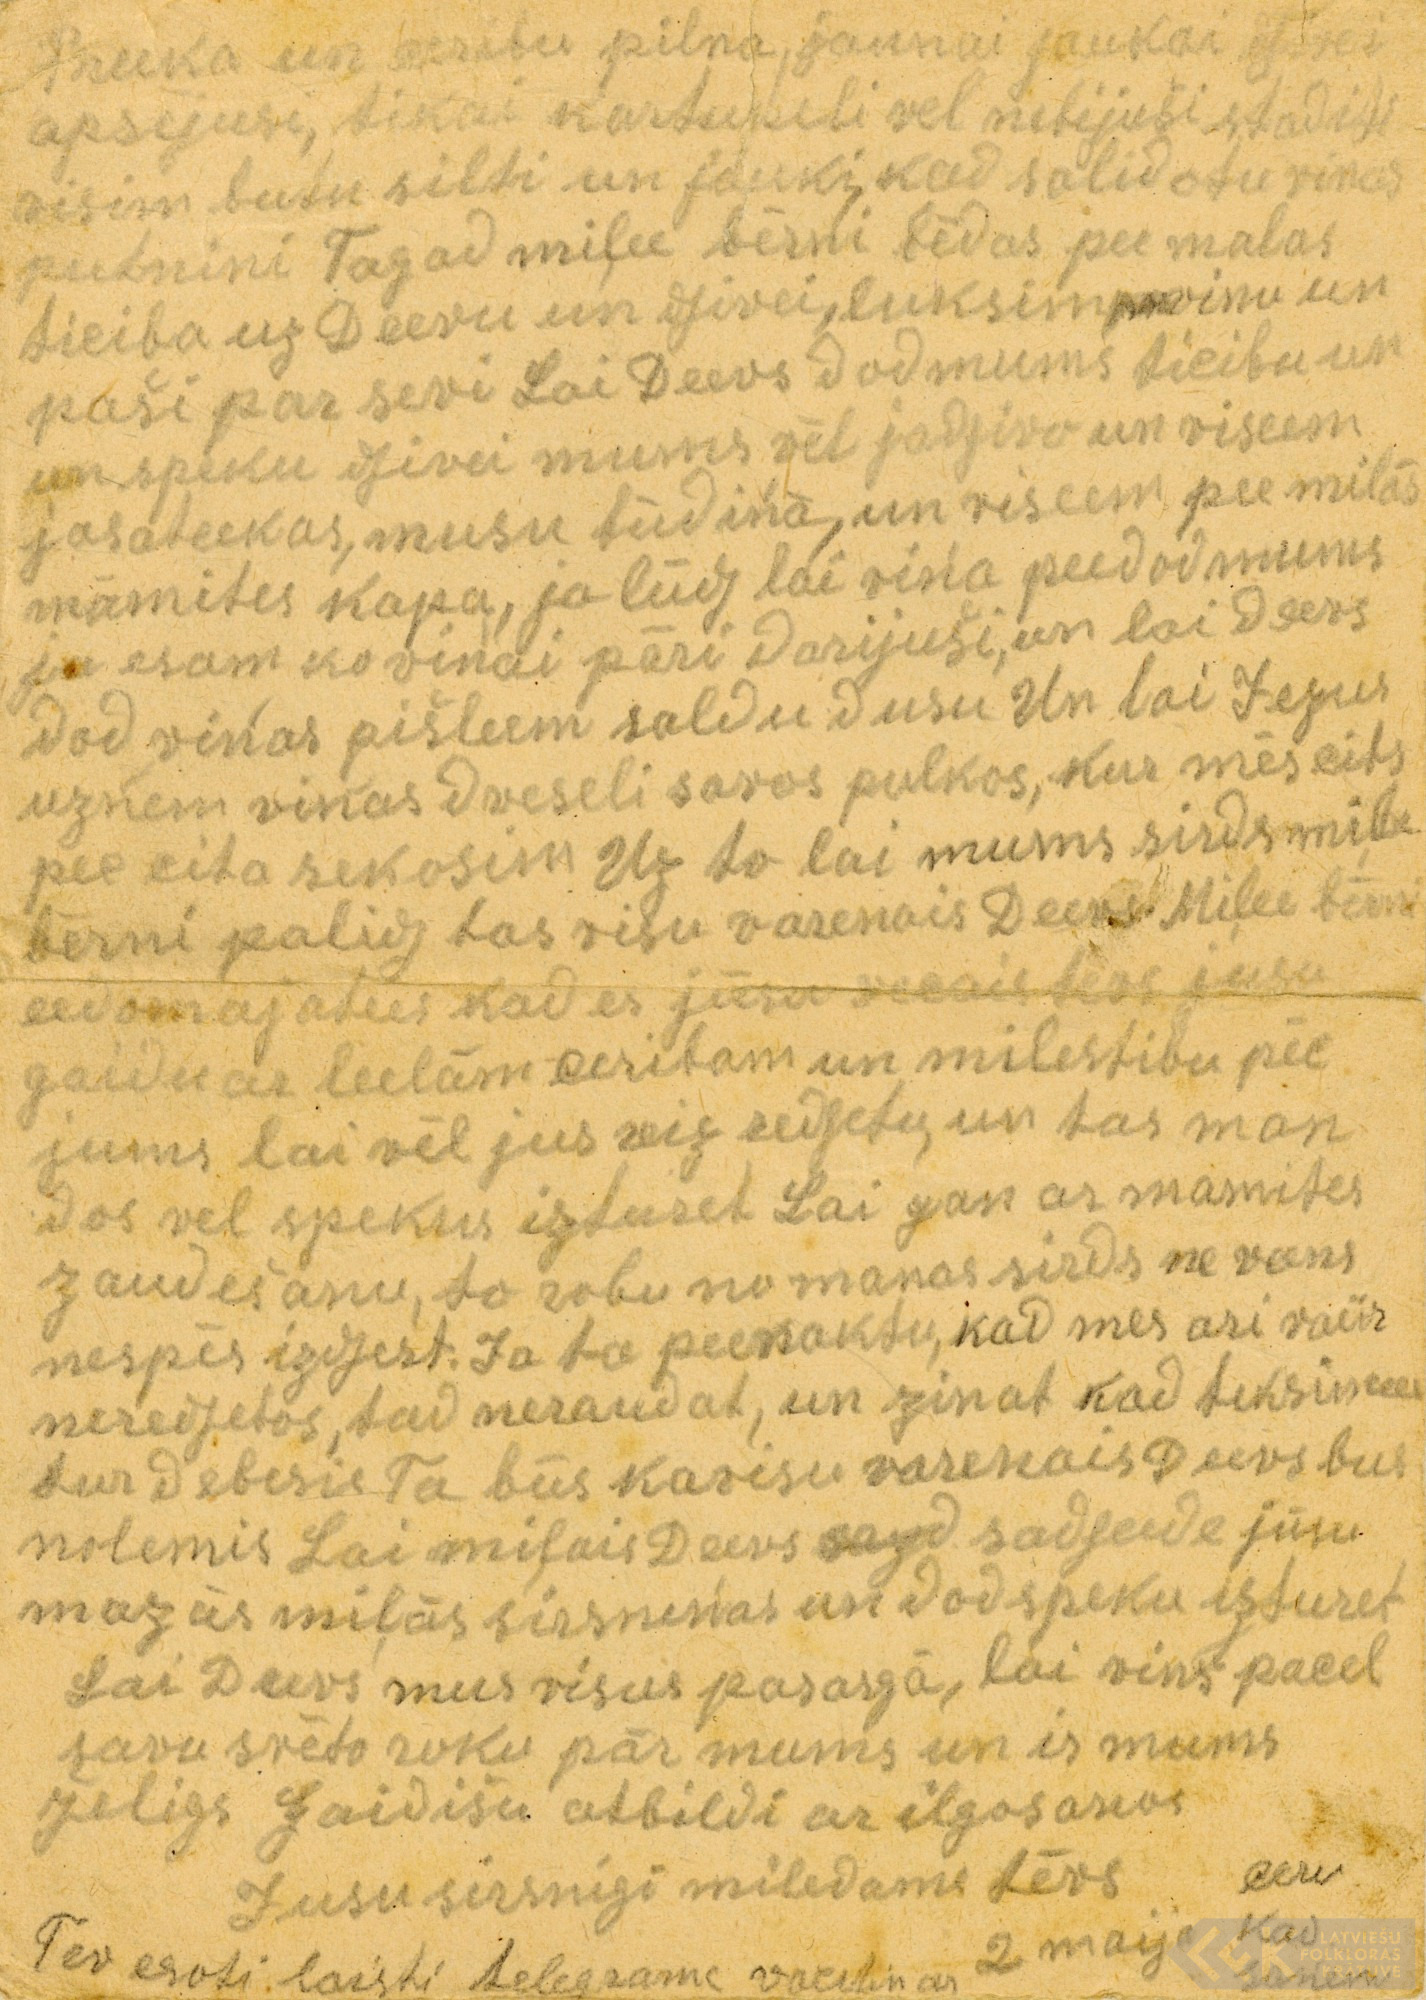 Preeka un ceribu pilna, jaunai jaukai dzivei
apsejuse, tikai kartupeli vel nebijuši stadite
visim butu silti un jauki, kad salidotu vinas
putnini Tagad miļee bērni bēdas pee malas
ticiba uz Deevu un dzivei, luksim vinu un
paši par sevi Lai Deevs dod mums ticibu un
un speku dzivei mums vēl jadzivo un viseem
jasateekas, musu tūdinā, un viseem pee milās
māmites kapa, ja lūdz lai viņa peedod mums
ja esam ko viņai pāri darijuši, un lai Deevs
dod viņas pišleem saldu dusu Un lai Jezus
uzņem viņas dveseli savos pulkos, kur mēs cits
pee cita sekosim Uz to lai mums sirds miļee
bērni palidz tas visu varenais Deevs Miļee bērni
eedomajatees kad es jūsu vecais tevs jusu
gaidu ar leelām ceribam un milestibu pēc
jums lai vēl jus reiz redzetu, un tas man
dos vel spekus izturet Lai gan ar mamites
zaudešanu, to robu no manas sirds ne veens
nespēs izdzest. Ja ta peenaktu, kad mes ari vair
neredzetos, tad neraudat, un zinat kad tiksimees
tur debesis Ta būs ka visu varenais Deevs bus
nolemis Lai miļais Deevs sadzeede jūsu
mazās miļās sirsneņas un dod speku izturet
Lai Deevs mus visus pasargā, lai viņš pacel
savu svēto roku pār mums un ir mums
želigs Gaidišu atbildi ar ilgosanos
Jusu sirsnigi miledams tēvs ceru
Tev esoti laisti telegrame 2 maija Kad
saņem
LATVIEŠU
FOLKLORAS
KRĀTUVE